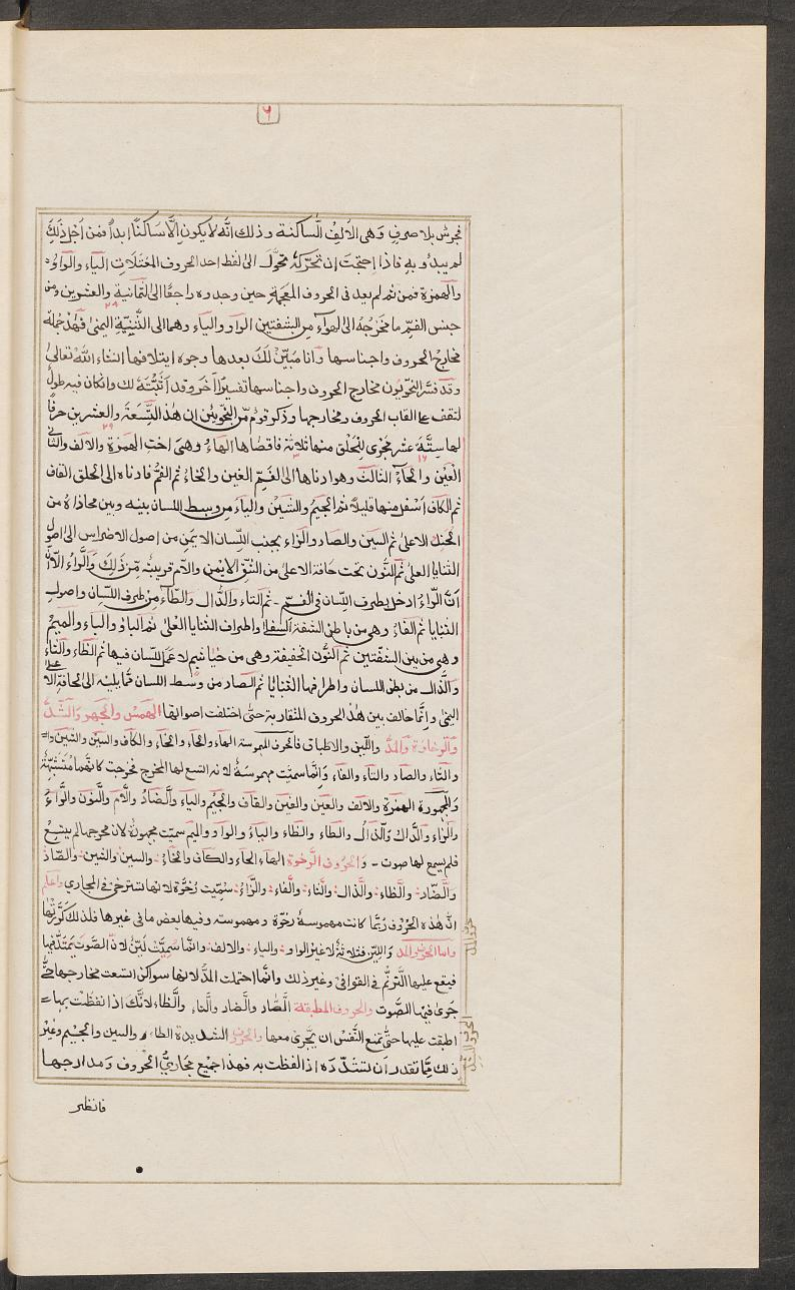 ٦
فجرش بلا صرف وهى الالف الساكنة وذلك انه لا يكون الا ساكنا ابدا فمن اجل ذلك
لم يبدو به فاذا احتجت ان تحركه تحول الى لفظ احد الحروف المعتلات الياء والواو
والهمزة فمن ثم لم يعد فى الحروف المعجمة حين وجدوه راجعا الى الثمانية والعشرين ومن
جنس الفم ما مخرجه الى الهواء من الشفتين الواو والياء وهما الى اليمنى فهذ جملة
٢٩
مخارج الحروف واجناسها وانا مبين لك بعدها وجوه ايتلافها انشاء الله تعالى
وقد فسر النحويون مخارج الحروف واجناسها تفسيرا آخر وقد اثبته لك وان كان فيه طول
لتقف على القاب الحروف ومخارجها وذكر قوم من النحويين ان هذ التسعة والعشرين حرفا
٢٩
لها ستة عشر مجرى للحلق منها ثلاثة فاقصاها الهاء وهى اخت الهمزة والالف والثانى
١٦
العين والحاء الثالث وهو ادناها الى الفم الغين والخاء ثم الفم فادناه الى الحلق القاف
ثم الكاف اسفل منها قليلا ثم الجيم والشين والياء من وسط اللسان بينه وبين محاذاة من
الحنك الاعلى ثم السين والصاد والراء بجنب اللسان الايمن من اصول الاضراس الى اصول
الثنايا العلى ثم النون تحت حافة الاعلى من الشق الايمن واللام قريبة من ذلك والراء الا
ان الراء ادخل بطرف اللسان فى الفم - ثم التاء والدال والطاء من طرف اللسان واصول
الثنايا ثم الفاء وهى من باطن الشفة السفلى واطراف الثنايا العلى ثم الباء والميم
وهى من بين الشفتين ثم النون الخفيفة وهى من خياشيم لا عمل للسان فيها ثم الظاء والثاء
والذال من بطن اللسان واطراف الثنايا ثم الضاد من وسط اللسان مما يليه الى الحافة
اليمنى وانما خالف بين هذ الحروف المتقاربة حتى اختلفت اصواتها الهمس والجهر والشد
والرخاوة والمد واللين والاطباق فالحروف المهموسة الهاء والحاء والخاء والكاف والسين والشين
والثاء والصاد والتاء والفاء وانما سميت مهموسة لانه اتسع لها المخرج فخرجت كانها متفشية
والمجهورة الهمزة والالف والعين والغين والقاف والجيم والياء والضاد واللام والنون والراء
والزاء والدال والذال والطاء والظاء والباء والواو والميم سميت مجهورة لان مخرجها لم يتسع
فلم يسمع لها صوت - والحروف الرخوة الهاء الحاء والكاف والخاء والسين والشين والصاد
والضاد والظاء والذال والثاء والفاء والزاء سميت رخوة لانها تسترخى فى المجارى واعلم
ان هذه الحروف ربما كانت مهموسة رخوة ومهموسة وفيها بعض ما فى غيرها فلذلك كررتها
واما الحروف المد واللين فثلاثة لا غير الواو والياء والالف وانما سميت لين لان الصوت يمتد فيها
فيقع عليها الترنم فى القوافى وغير ذلك وانما احتملت المد لانها سواكن اتسعت مخارجها حتى
جرى فيها الصوت والحروف المطبقة الصاد والضاد والطاء والظاء لانك اذا لفظت بها
اطبقت عليها حتى تمنع النفس ان يجرى معها والحروف الشديدة الطاء والسين والجيم وغير
ذلك مما تقدر ان تشدده اذا لفظت به فهذا جميع مجارى الحروف ومدارجها
فانظر